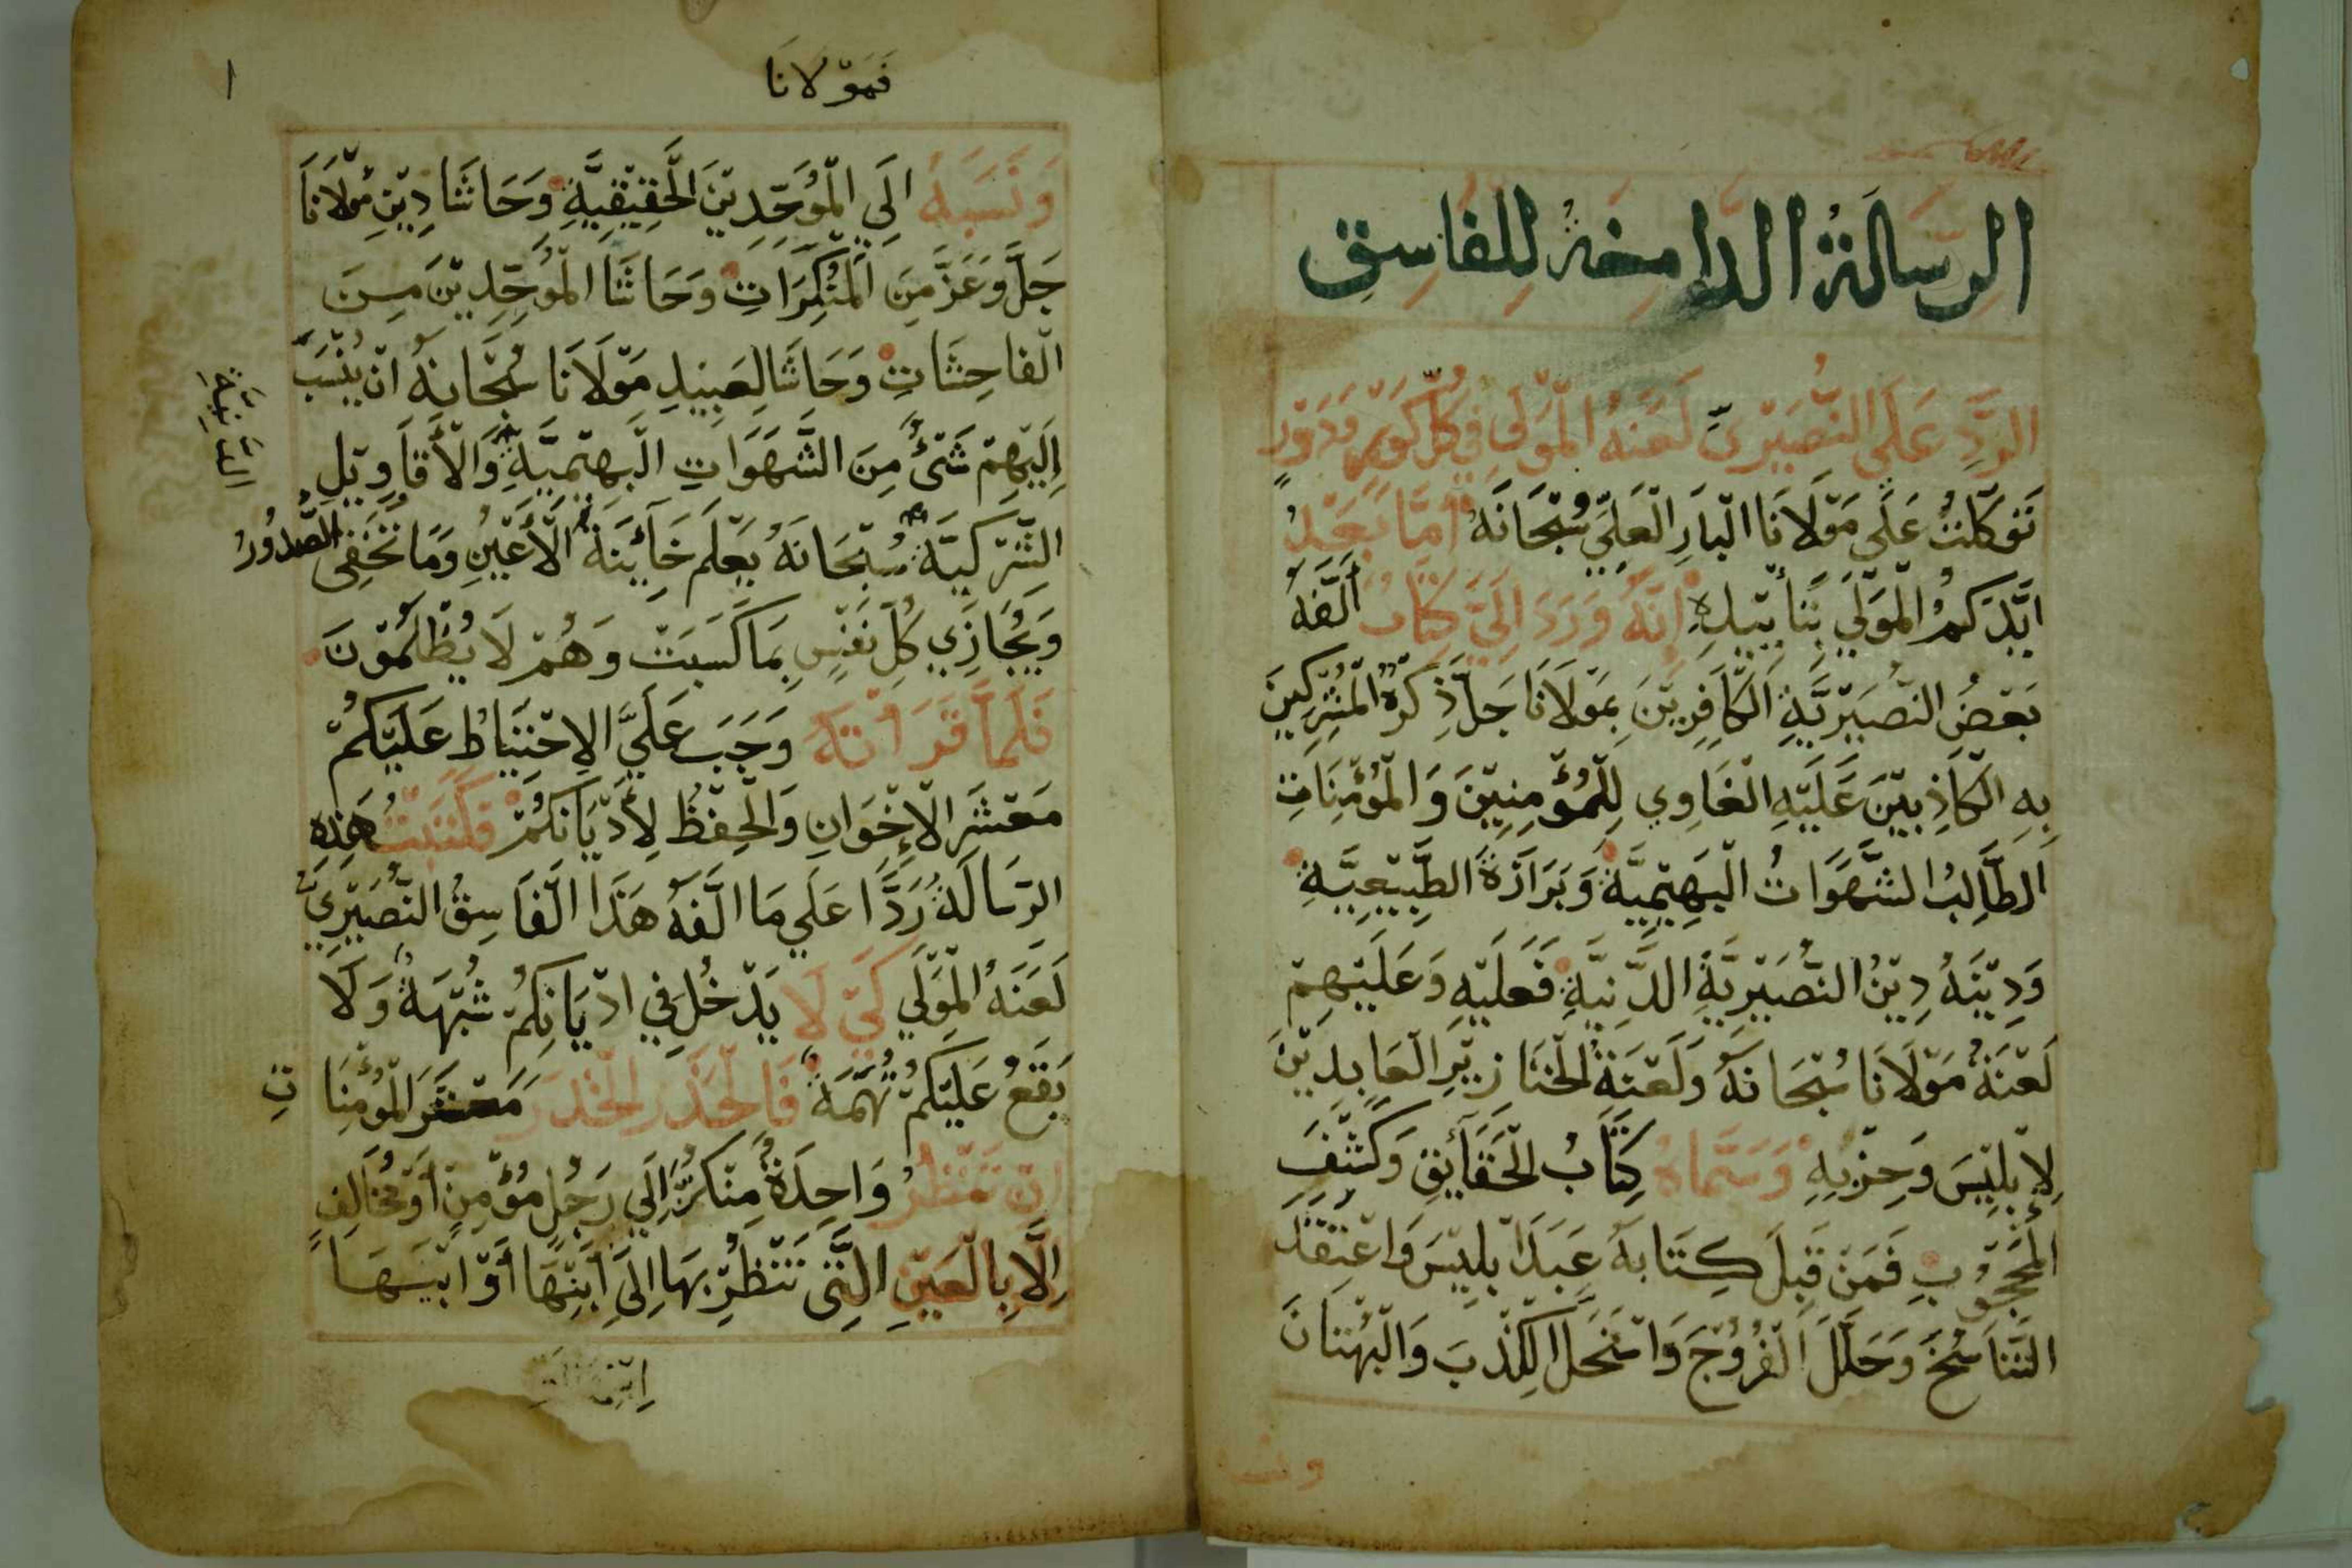 الرِّسَالَةُ الدَّامِغَةُ لِلفَاسِقِ
الرَّدِّ عَلَي النُّصَيْرِيِّ لَعَنَهُ الْمَوْلَي فِي كُلِّ كَوْرٍ وَدَوْرٍ
تَوَكَّلْتُ عَلَي مَوْلَانَا الْبَارِ الْعَلِيِّ سُبْحَانَهُ اَمَّا بَعْدُ
اَيَّدَكُمُ الْمَوْلَي بِتَأْيِيدِهِ اِنَّهُ وَرَدَ اِلَيَّ كِتَابٌ اَلَّفَهُ
بَعْضُ النُّصَيْرِيَّةِ الْكَافِرِيْنَ بِمَوْلَانَا جَلَّ ذِكْرُهُ الْمُشْرِكِينَ
بِهِ الْكَاذِبِيْنَ عَلَيْهِ الْغَاوِي لِلْمُؤْمِنِيْنَ وَالْمُؤْمِنَاتِ
الطَّالِبُ الشَّهَوَاتُ الْبَهِيْمِيَّةُ وَبَرَازَةُ الطَّبِيْعِيَّةِ
وَدِيْنَهُ دِيْنُ النُّصَيْرِيَّةِ الدَّنِيَّةِ فَعَلَيْهِ وَعَلَيْهِمْ
لَعْنَةُ مَوْلَانَا سُبْحَانَهُ وَلَعْنَةُ الْخَنَازِيْرِ الْعَابِدِيْنَ
لِاِبْلِيْسَ وَحِزْبِهِ وَسَمَّاهُ كِتَابُ الْحَقَائِقِ وَكَشْفِ
الْمَحْجُوْبِ فَمَنْ قَبِلَ كِتَابَهُ عَبَدَ اِبْلِيْسَ وَاعْتَقَدَ
التَّنَاسُخَ وَحَلَّلَ الْفُرُوْجَ وَاسْتَحَلَّ الْكِذْبَ وَالْبُهْتَانَ
فَمَوْلَانَا
١
وَنَسَبَهُ اِلَي الْمُوَحِّدِيْنَ الْحَقِيْقِيَّةِ وَحَاشَا دِيْنِ مَوْلَانَا
جَلَّ وَعَزَّ مِنَ الْمُنْكِرَاتِ وَحَاشَا الْمُوَحِّدِيْنَ مِنَ
الْفَاحِشَاتِ وَحَاشَا لِعَبِيْدِ مَوْلَانَا سُبْحَانَهُ اَنْ يُنْسَبَ
اِلَيْهِمْ شَيْءٌ مِنَ الشَّهَوَاتِ الْبَهِيْمِيَّةِ وَالْأَقَاوِيْلِ
الشِّرْكِيَّةِ سُبْحَانَهُ يَعْلَمُ خَآئِنَةَ الْأَعْيُنِ وَمَا تُخْفِي الصُّدُوْرُ
وَيُجَازِي كُلَّ نَفْسٍ بِمَا كَسَبَتْ وَهُمْ لَا يُظْلَمُوْنَ
فَلَمَّا قَرَأْتَهُ وَجَبَ عَلَيَّ الِاحْتِيَاطُ عَلَيْكُمْ
مَعْشَرَ الْاِخْوَانِ وَالْحِفْظُ لِأَدْيَانِكُمْ فَكَتَبْتُ هَذِهِ
الرِّسَالَةُ رَدًّا عَلَي مَا اَلَّفَهُ هَذَا الْفَاسِقُ النُّصَيْرِيُّ
لَعَنَهُ الْمَوْلَي كَيْ لَا يَدْخُلَ فِي اَدْيَانِكُمْ شُبْهَةٌ وَلَا
يَقَعُ عَلَيْكُمْ تُهْمَةٌ فَالْحَذَرَ الْحَذَرَ مَعْشَرَ الْمُؤْمِنَاتِ
اِنْ تَنْظُرُ وَاحِدَةٌ مِنْكُنَّ اِلَي رَجُلٍ مُؤْمِنٍ اَوْ مُخَالِفٍ
اِلَّا بِالْعَيْنِ الَّتِي تَنْظُرُ بِهَا اِلَي اِبْنِهَا اَوْ اَبِيْهَا